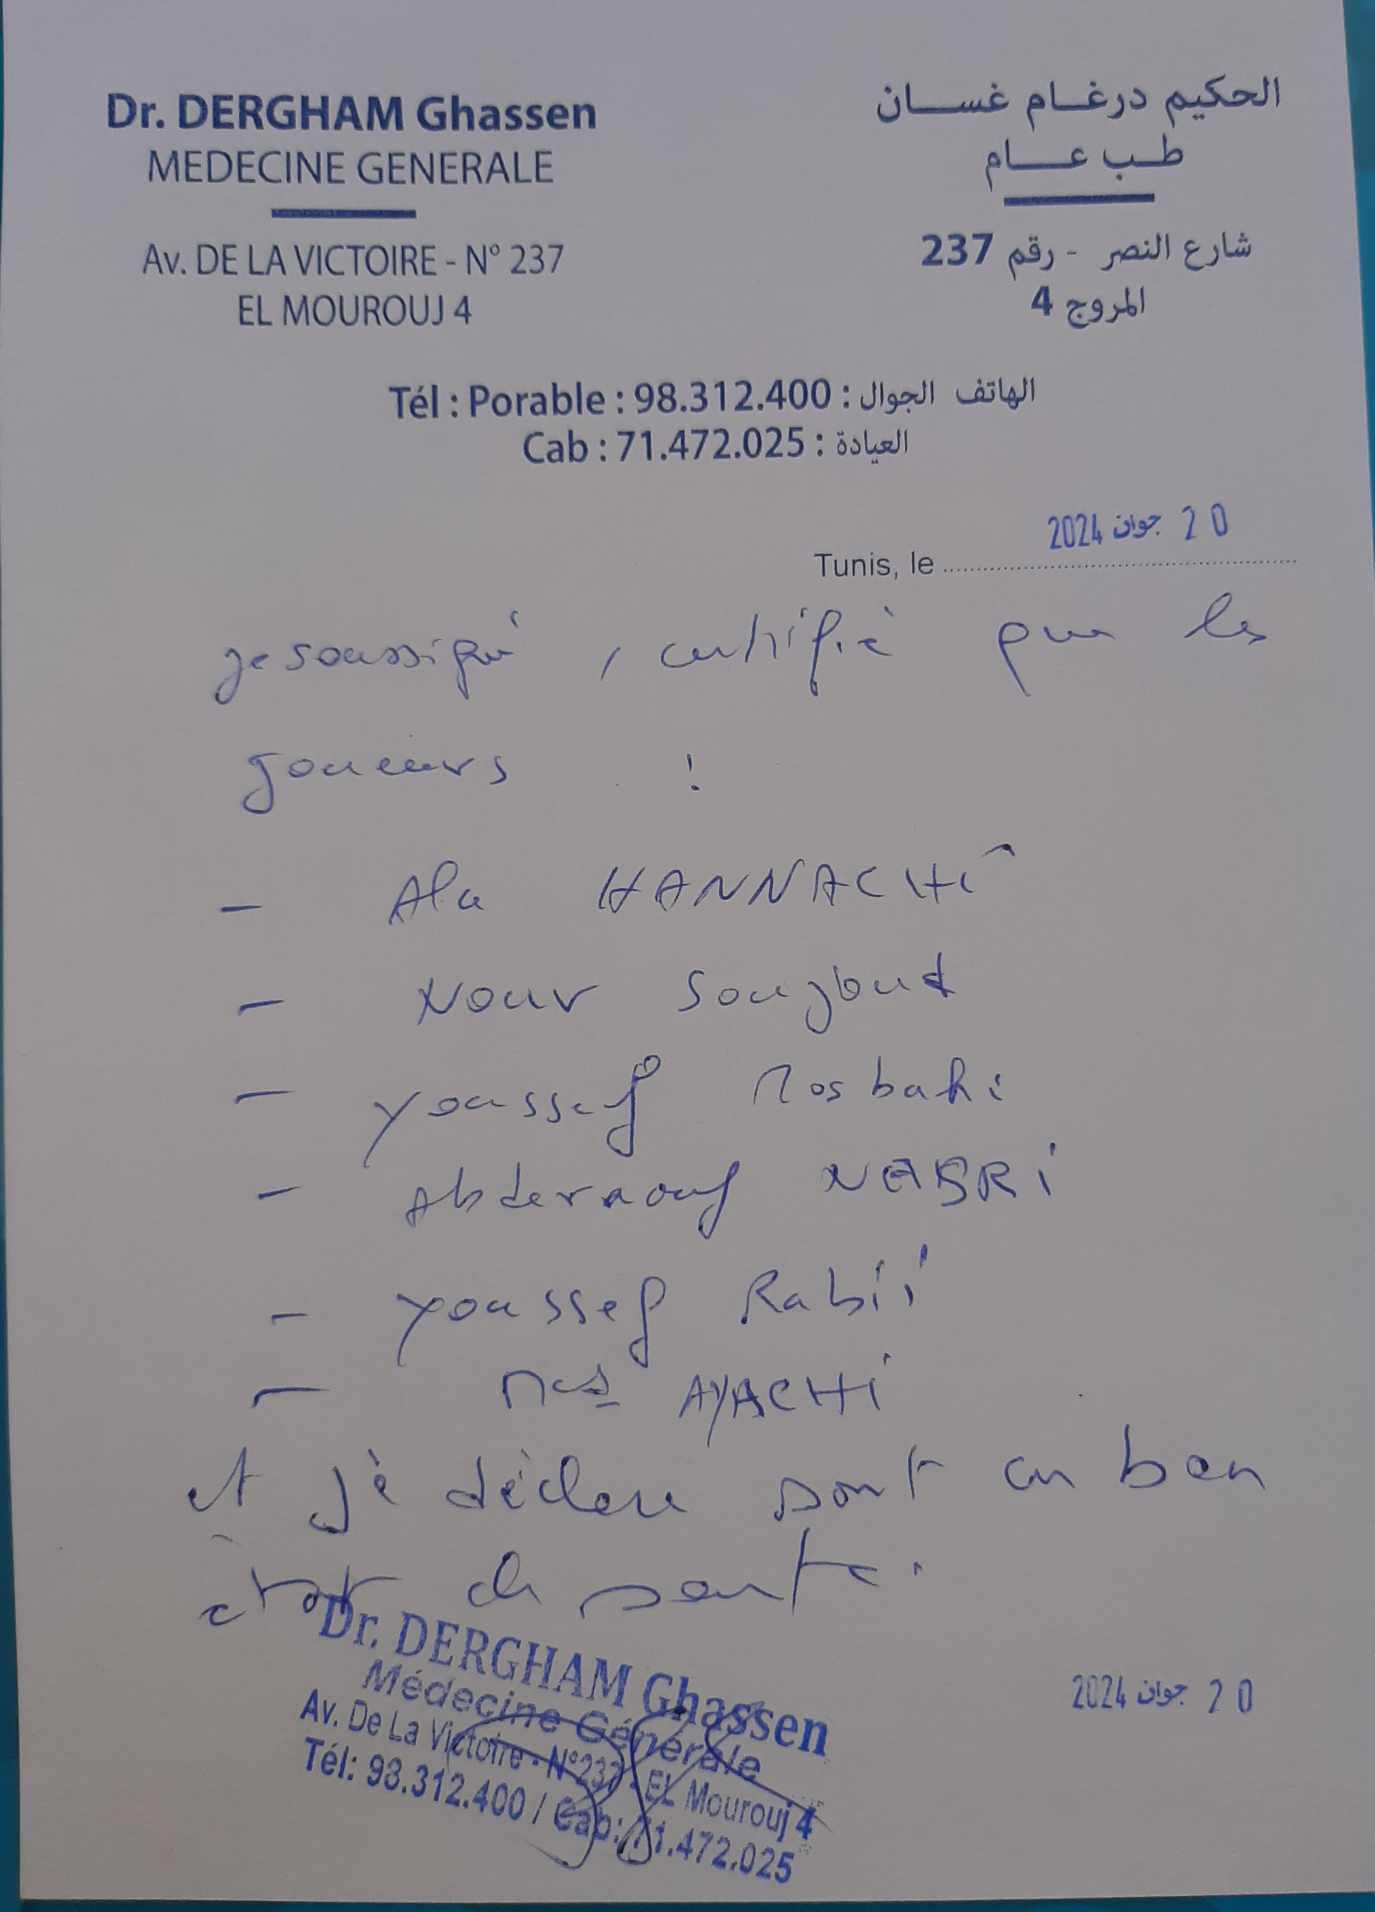 Dr. DERGHAM Ghassen
MEDECINE GENERALE
Av. DE LA VICTOIRE - N° 237
EL MOUROUJ 4
الحكيم درغام غسان
طب عام
شارع النصر - رقم 237
المروج 4
Tél : Porable : 98.312.400 : الهاتف الجوال
Cab : 71.472.025 : العيادة
Tunis, le 20 جوان 2024
je soussigné, certifié que les
joueurs :
- Ala HANNACHI
- Nour Soujoud
- Youssef Mosbahi
- Abderraouf NEBRI
- Youssef Rabii
- AYACHI
et je déclare sont en bon
état de santé.
Dr. DERGHAM Ghassen
Médecine Générale
Av. De La Victoire - N°237 - EL Mourouj 4
Tél: 98.312.400 / Cab: 71.472.025
20 جوان 2024